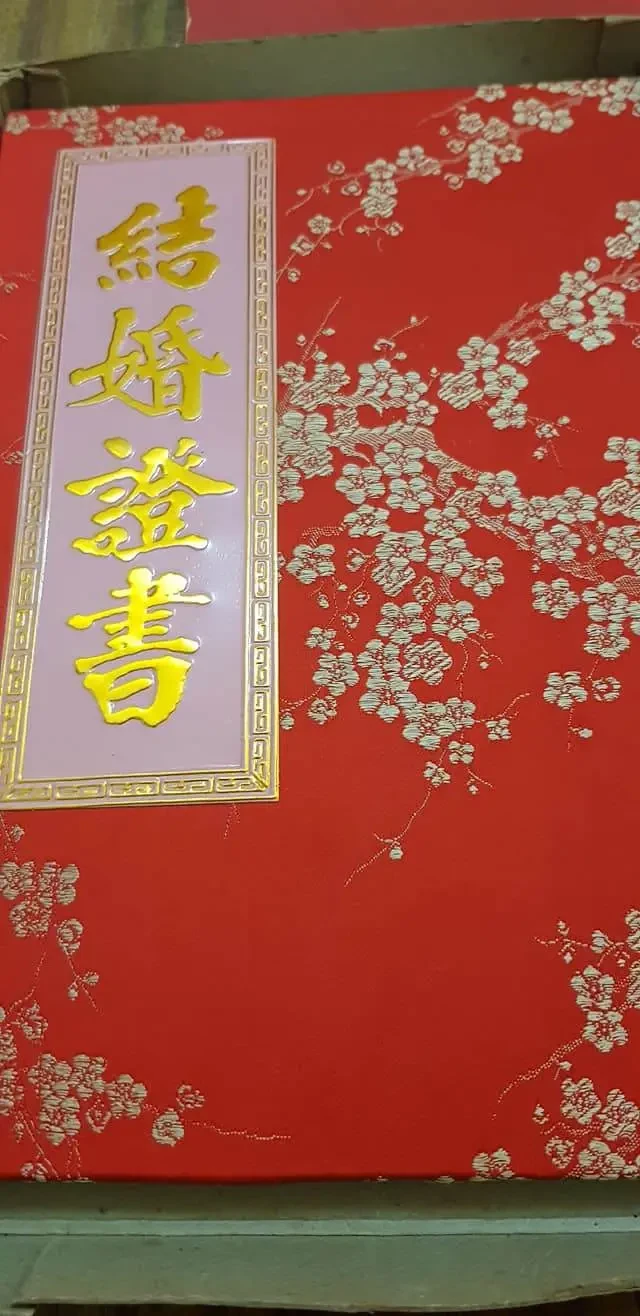 結婚證書